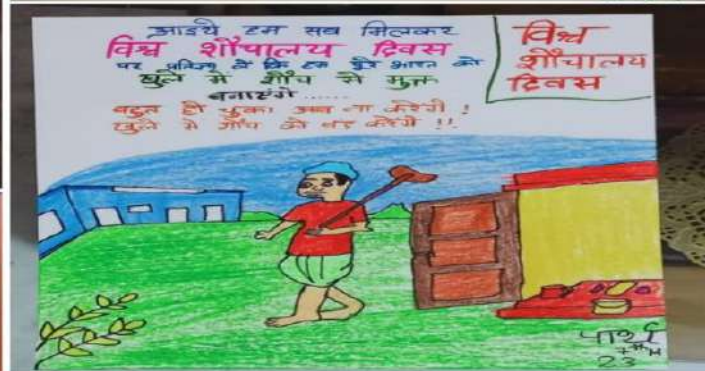 आइये हम सब मिलकर
विश्व शौचालय दिवस
पर प्रतिज्ञा लें कि हम पूरे भारत को
खुले में शौच से मुक्त
बनाएंगे ......
बहुत हो चुका अब ना करेंगे !
खुले में शौच को बंद करेंगे !!
विश्व
शौचालय
दिवस
23